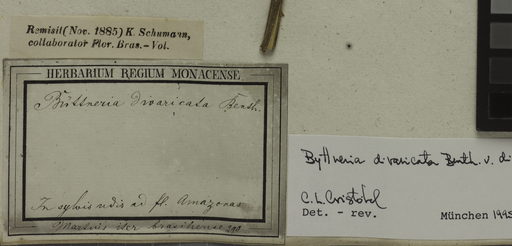 Remisit (Nov. 1885) K. Schumann,
collaborator Flor. Bras. - Vol.
HERBARIUM REGIUM MONACENSE
Büttneria divaricata Benth.
In sylvis udis ad fl. Amazonas
Martius iter brasiliense
Byttneria divaricata Benth. v. di
C. L. Cristóbal
Det. - rev.
München 1995